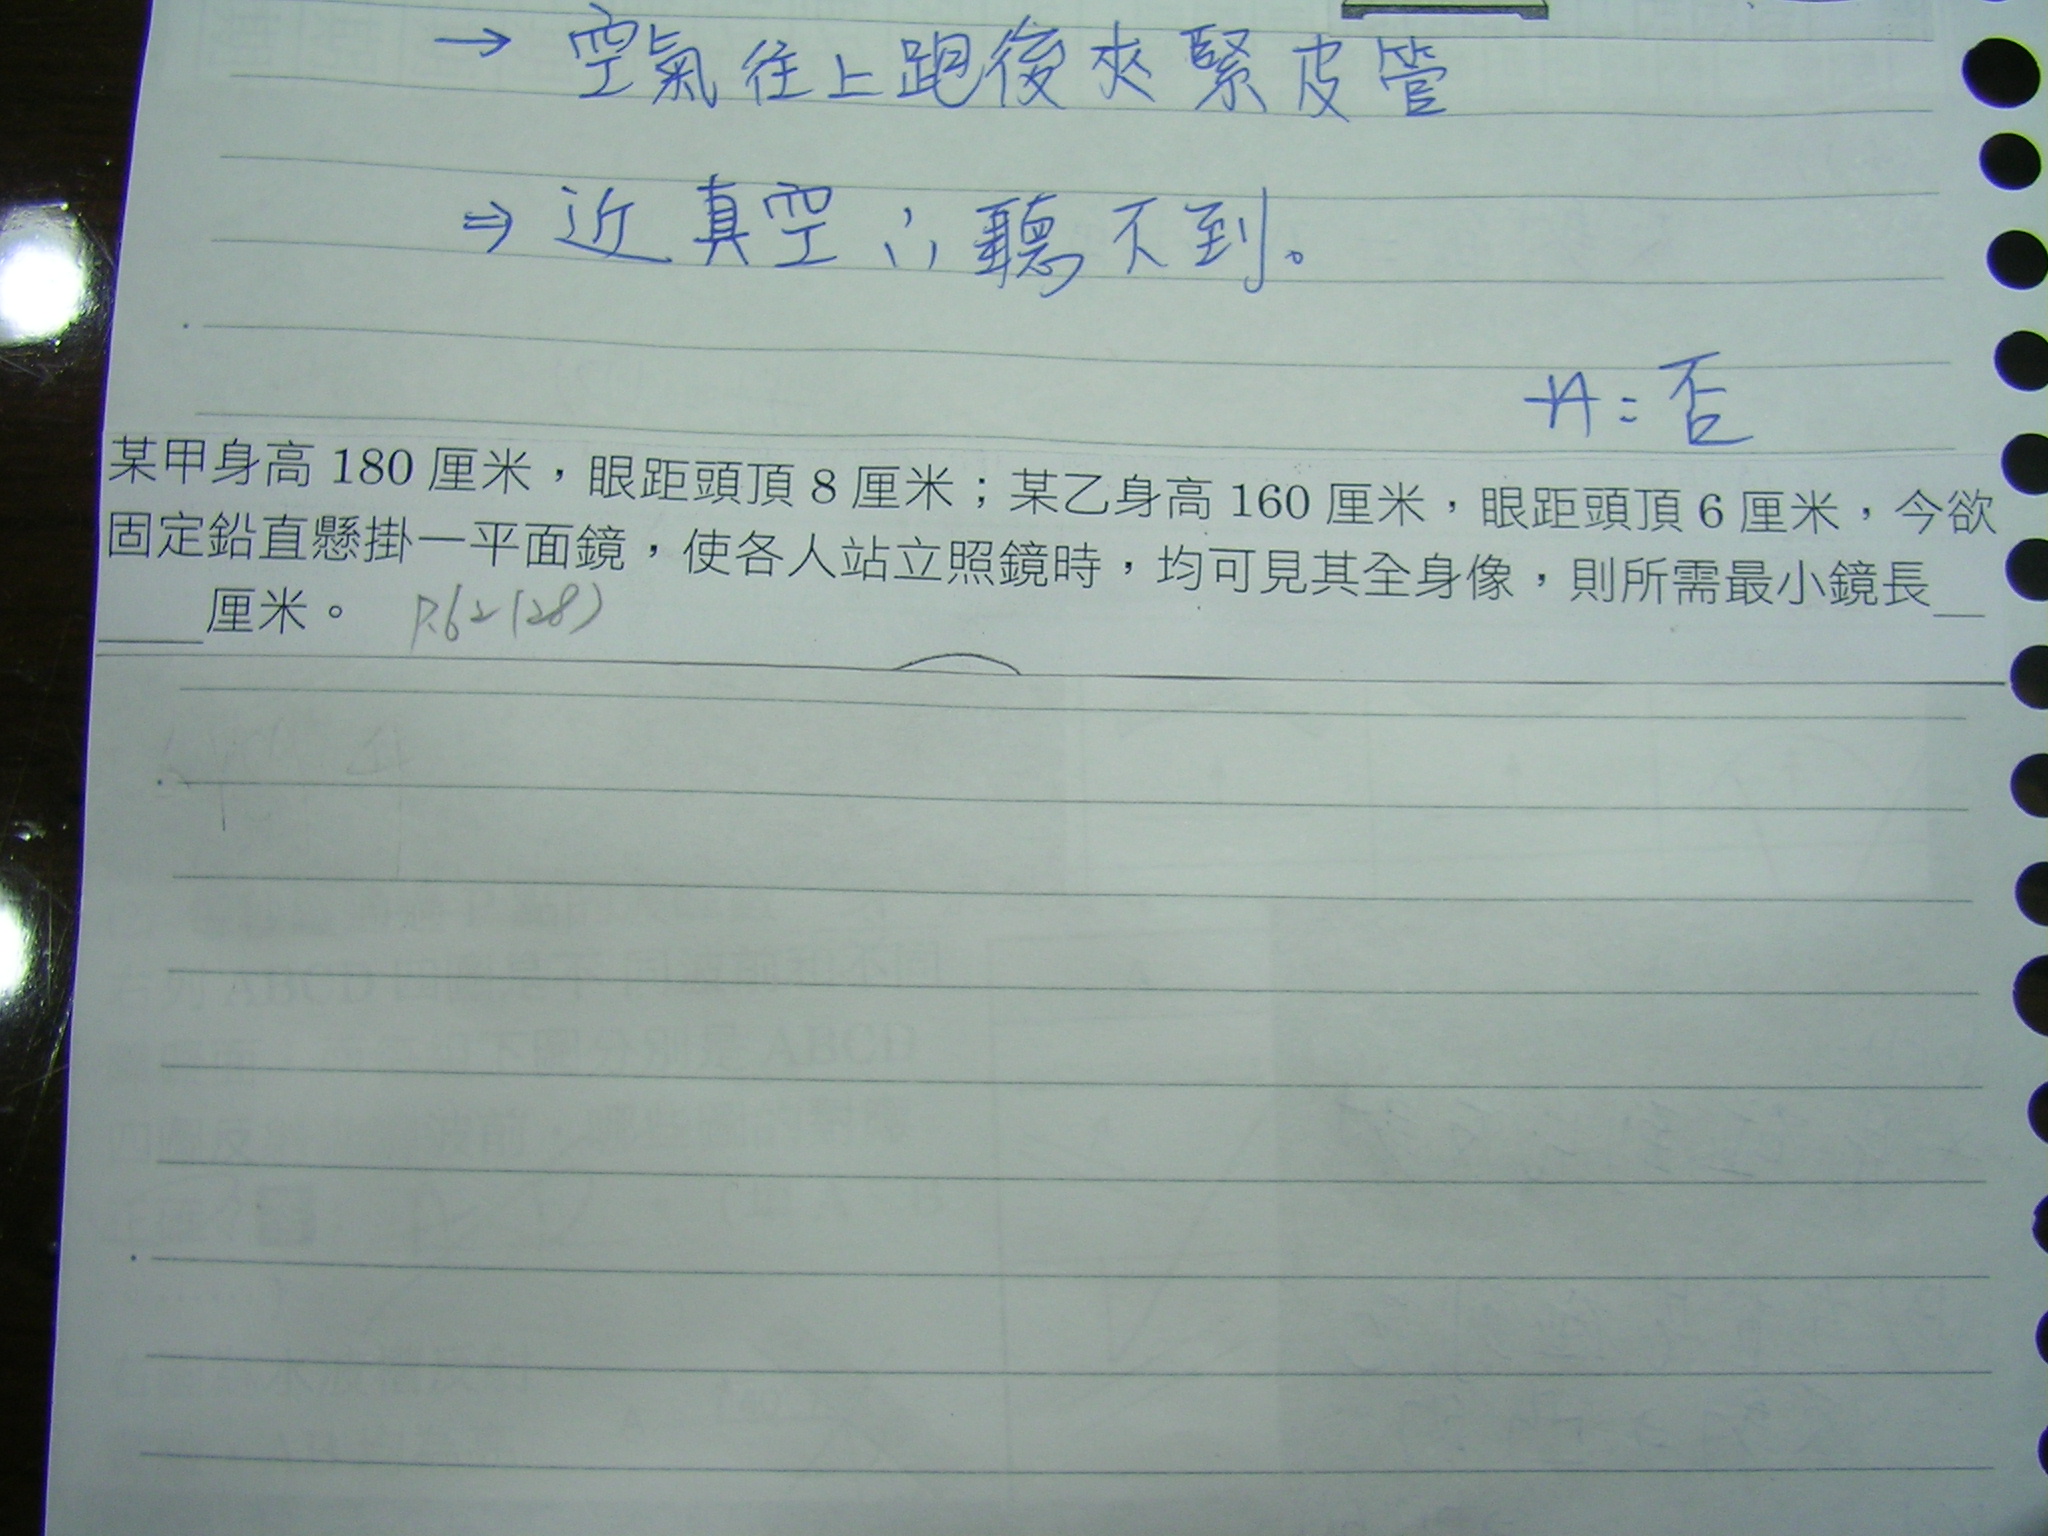 → 空氣往上跑後夾緊皮管
⇒ 近真空 ∴聽不到。
A:否
某甲身高 180 厘米，眼距頭頂 8 厘米；某乙身高 160 厘米，眼距頭頂 6 厘米，今欲
固定鉛直懸掛一平面鏡，使各人站立照鏡時，均可見其全身像，則所需最小鏡長__
____厘米。 P.62(28)